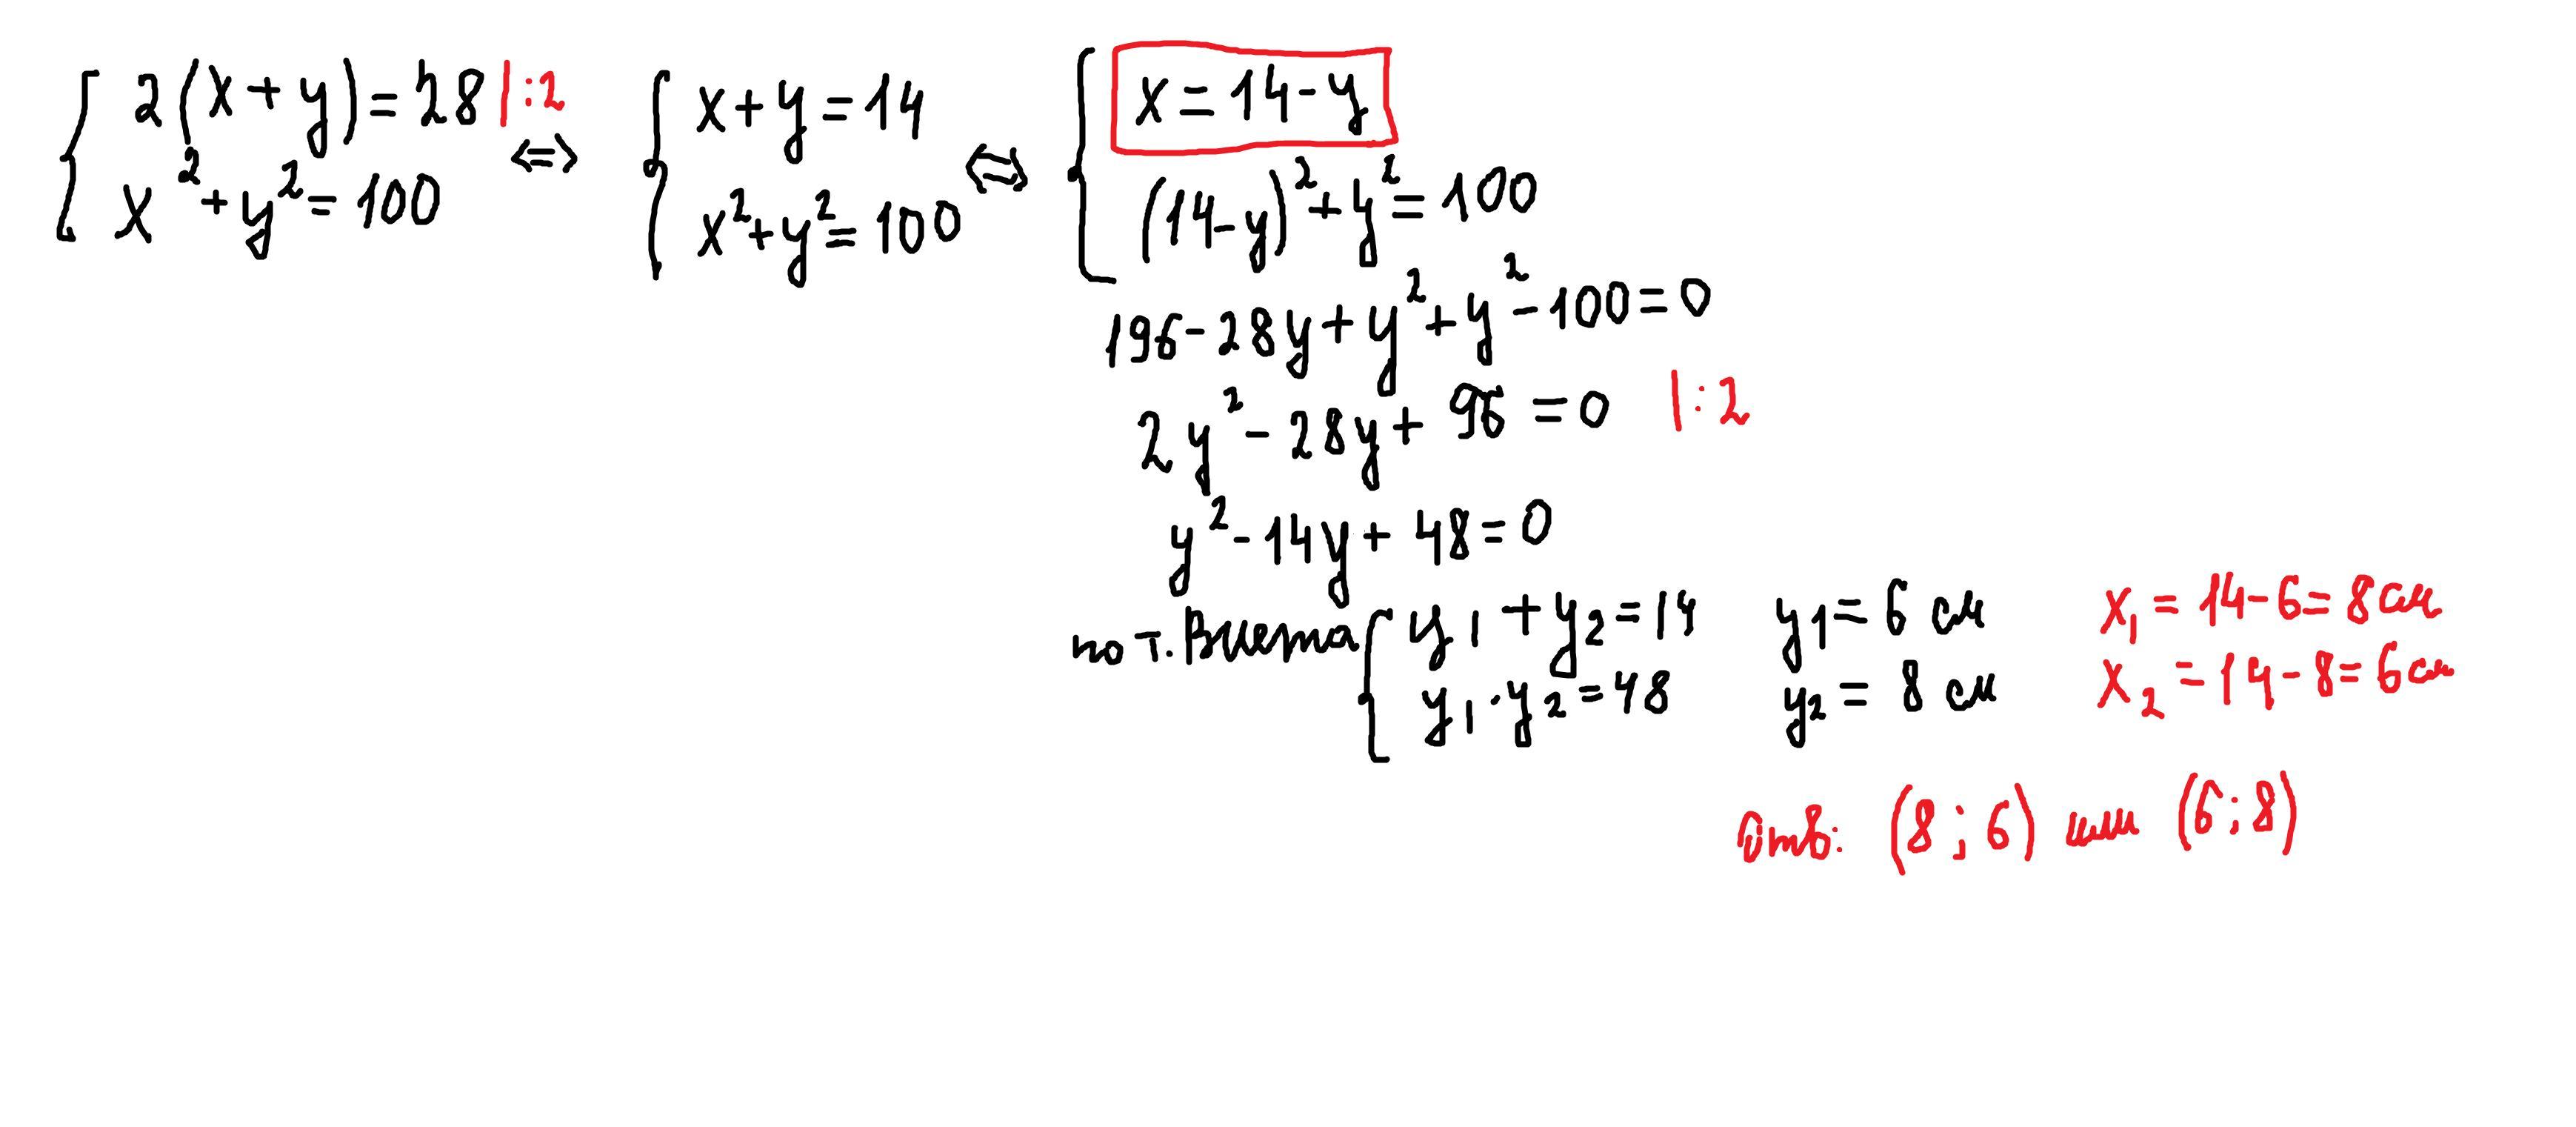 2(x+y)=28 |:2
x²+y²=100
⇔
x+y=14
x²+y²=100
⇔
x=14-y
(14-y)²+y²=100
196-28y+y²+y²-100=0
2y²-28y+96=0 |:2
y²-14y+48=0
по т. Виета
y₁+y₂=14
y₁·y₂=48
y₁=6 см
y₂=8 см
x₁=14-6=8см
x₂=14-8=6см
Отв: (8;6) или (6;8)